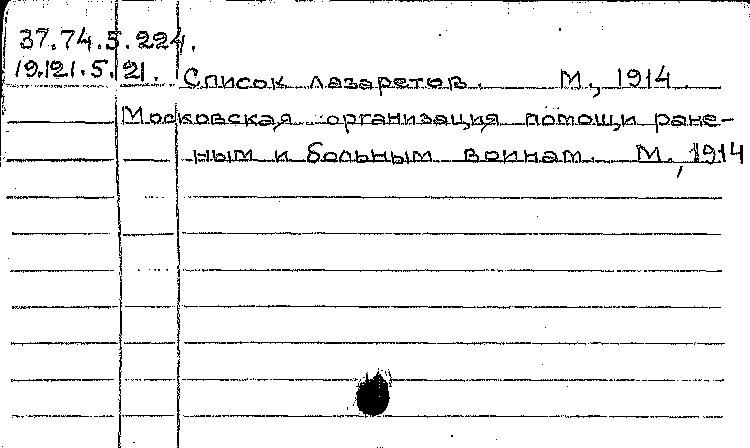 37.74.5.224.
19.121.5.21. Список лазаретов. М., 1914.
Московская организация помощи ране-
ным и больным воинам. М., 1914